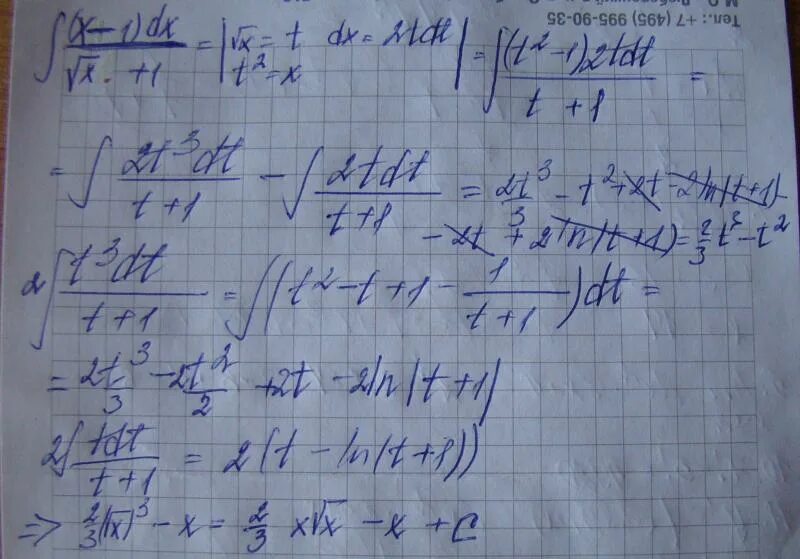 М.О. Люберецкий
Тел.: +7 (495) 995-90-35
∫ (x-1)dx / (√x + 1) = | √x = t dx = 2tdt t² = x | = ∫ (t²-1)2tdt / (t+1) =
= ∫ 2t³dt / (t+1) - ∫ 2tdt / (t+1) = 2t³/3 - t² + 2t - 2ln|t+1| -
- 2t + 2ln|t+1|) = 2/3 t³ - t²
2∫ t³dt / (t+1) = ∫(t² - t + 1 - 1/(t+1))dt =
= 2t³/3 - 2t²/2 + 2t - 2ln|t+1|
2∫ tdt / (t+1) = 2(t - ln(t+1))
=> 2/3 (√x)³ - x = 2/3 x√x - x + C